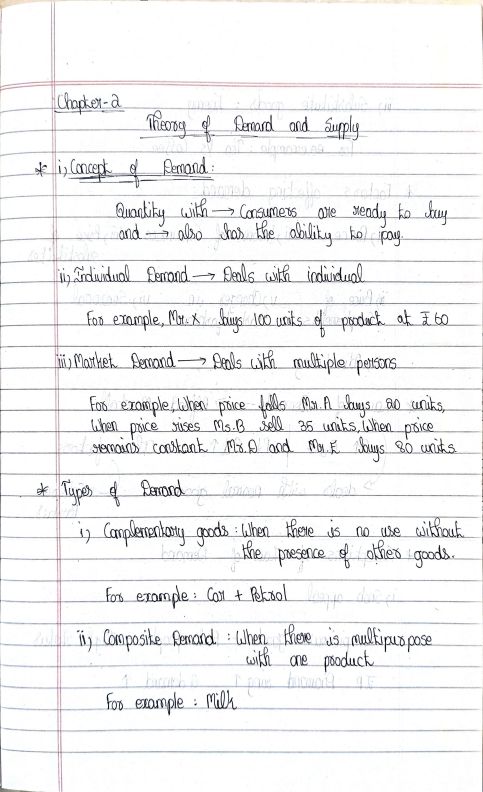 Chapter-2
Theory of Demand and Supply
* i) Concept of Demand:
Quantity with → Consumers are ready to buy
and → also has the ability to pay.
ii) Individual Demand → Deals with individual
For example, Mr. X buys 100 units of product at ₹ 60
iii) Market Demand → Deals with multiple persons
For example, When price falls Mr. A buys 20 units,
When price rises Ms. B sell 35 units, When price
remains constant Mr. D and Mr. E buys 80 units.
* Types of Demand
i) Complementary goods : When there is no use without
the presence of other goods.
For example : Car + Petrol
ii) Composite Demand : When there is multipurpose
with one product
For example : Milk